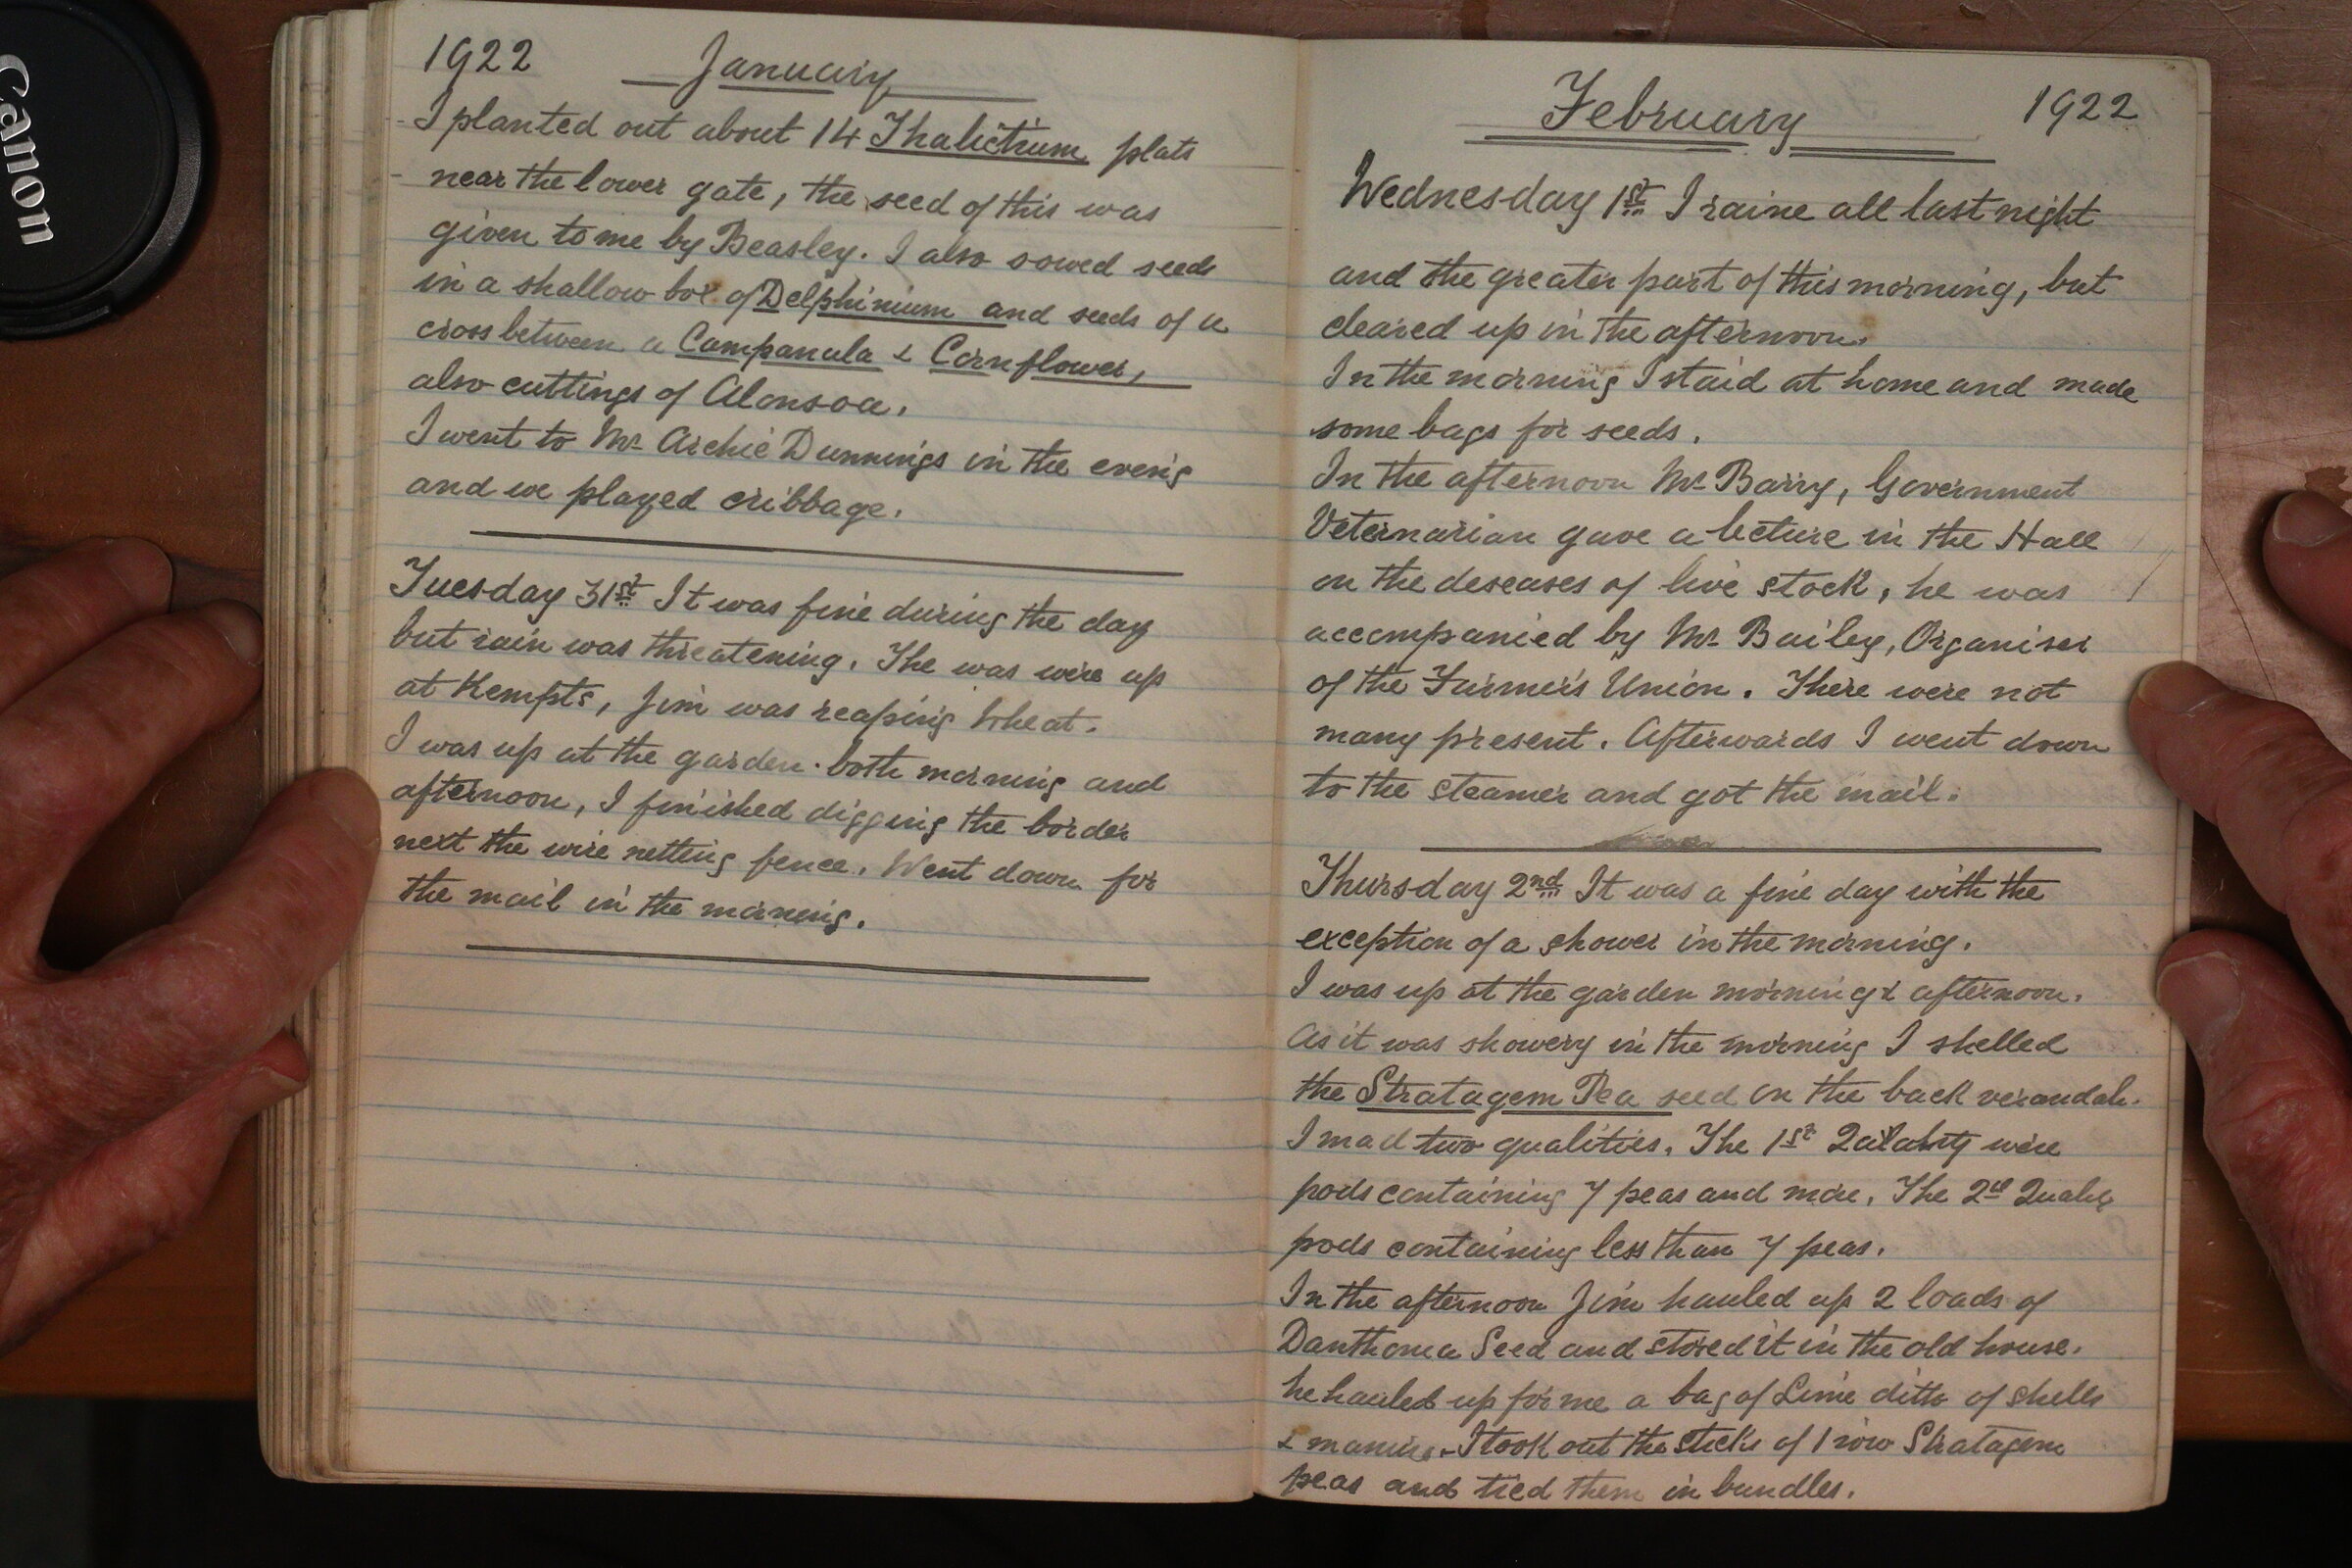 Canon
1922 January
I planted out about 14 Thalictrum plats
near the lower gate, the seed of this was
given to me by Beasley. I also sowed seeds
in a shallow box of Delphinium and seeds of a
cross between a Campanula & Cornflower,
also cuttings of Alonsoa.
I went to Mr Archie Dunnings in the evenig
and we played cribbage.
Tuesday 31st It was fine during the day
but rain was threatening. The was were up
at Kempts, Jim was reaping wheat.
I was up at the garden both morning and
afternoon, I finished digging the border
next the wire netting fence. Went down for
the mail in the morning.
February 1922
Wednesday 1st I raine all last night
and the greater part of this morning, but
cleared up in the afternoon.
In the morning I staid at home and made
some bags for seeds.
In the afternoon Mr Barry, Government
Veternarian gave a lecture in the Hall
on the deseases of live stock, he was
accompanied by Mr Bailey, Organiser
of the Farmer's Union. There were not
many present. Afterwards I went down
to the steamer and got the mail.
Thursday 2nd It was a fine day with the
exception of a shower in the morning.
I was up at the garden morning & afternoon.
As it was showery in the morning I shelled
the Stratagem Pea seed on the back verandah.
I mad two qualities. The 1st were
pods containing 7 peas and more. The 2nd
pods containing less than 7 peas.
In the afternoon Jim hauled up 2 loads of
Danthonia Seed and stored it in the old house.
he hauled up for me a bag of Lime ditto of shells
& manure. I took out the sticks of 1 row Stratagem
peas and tied them in bundles.